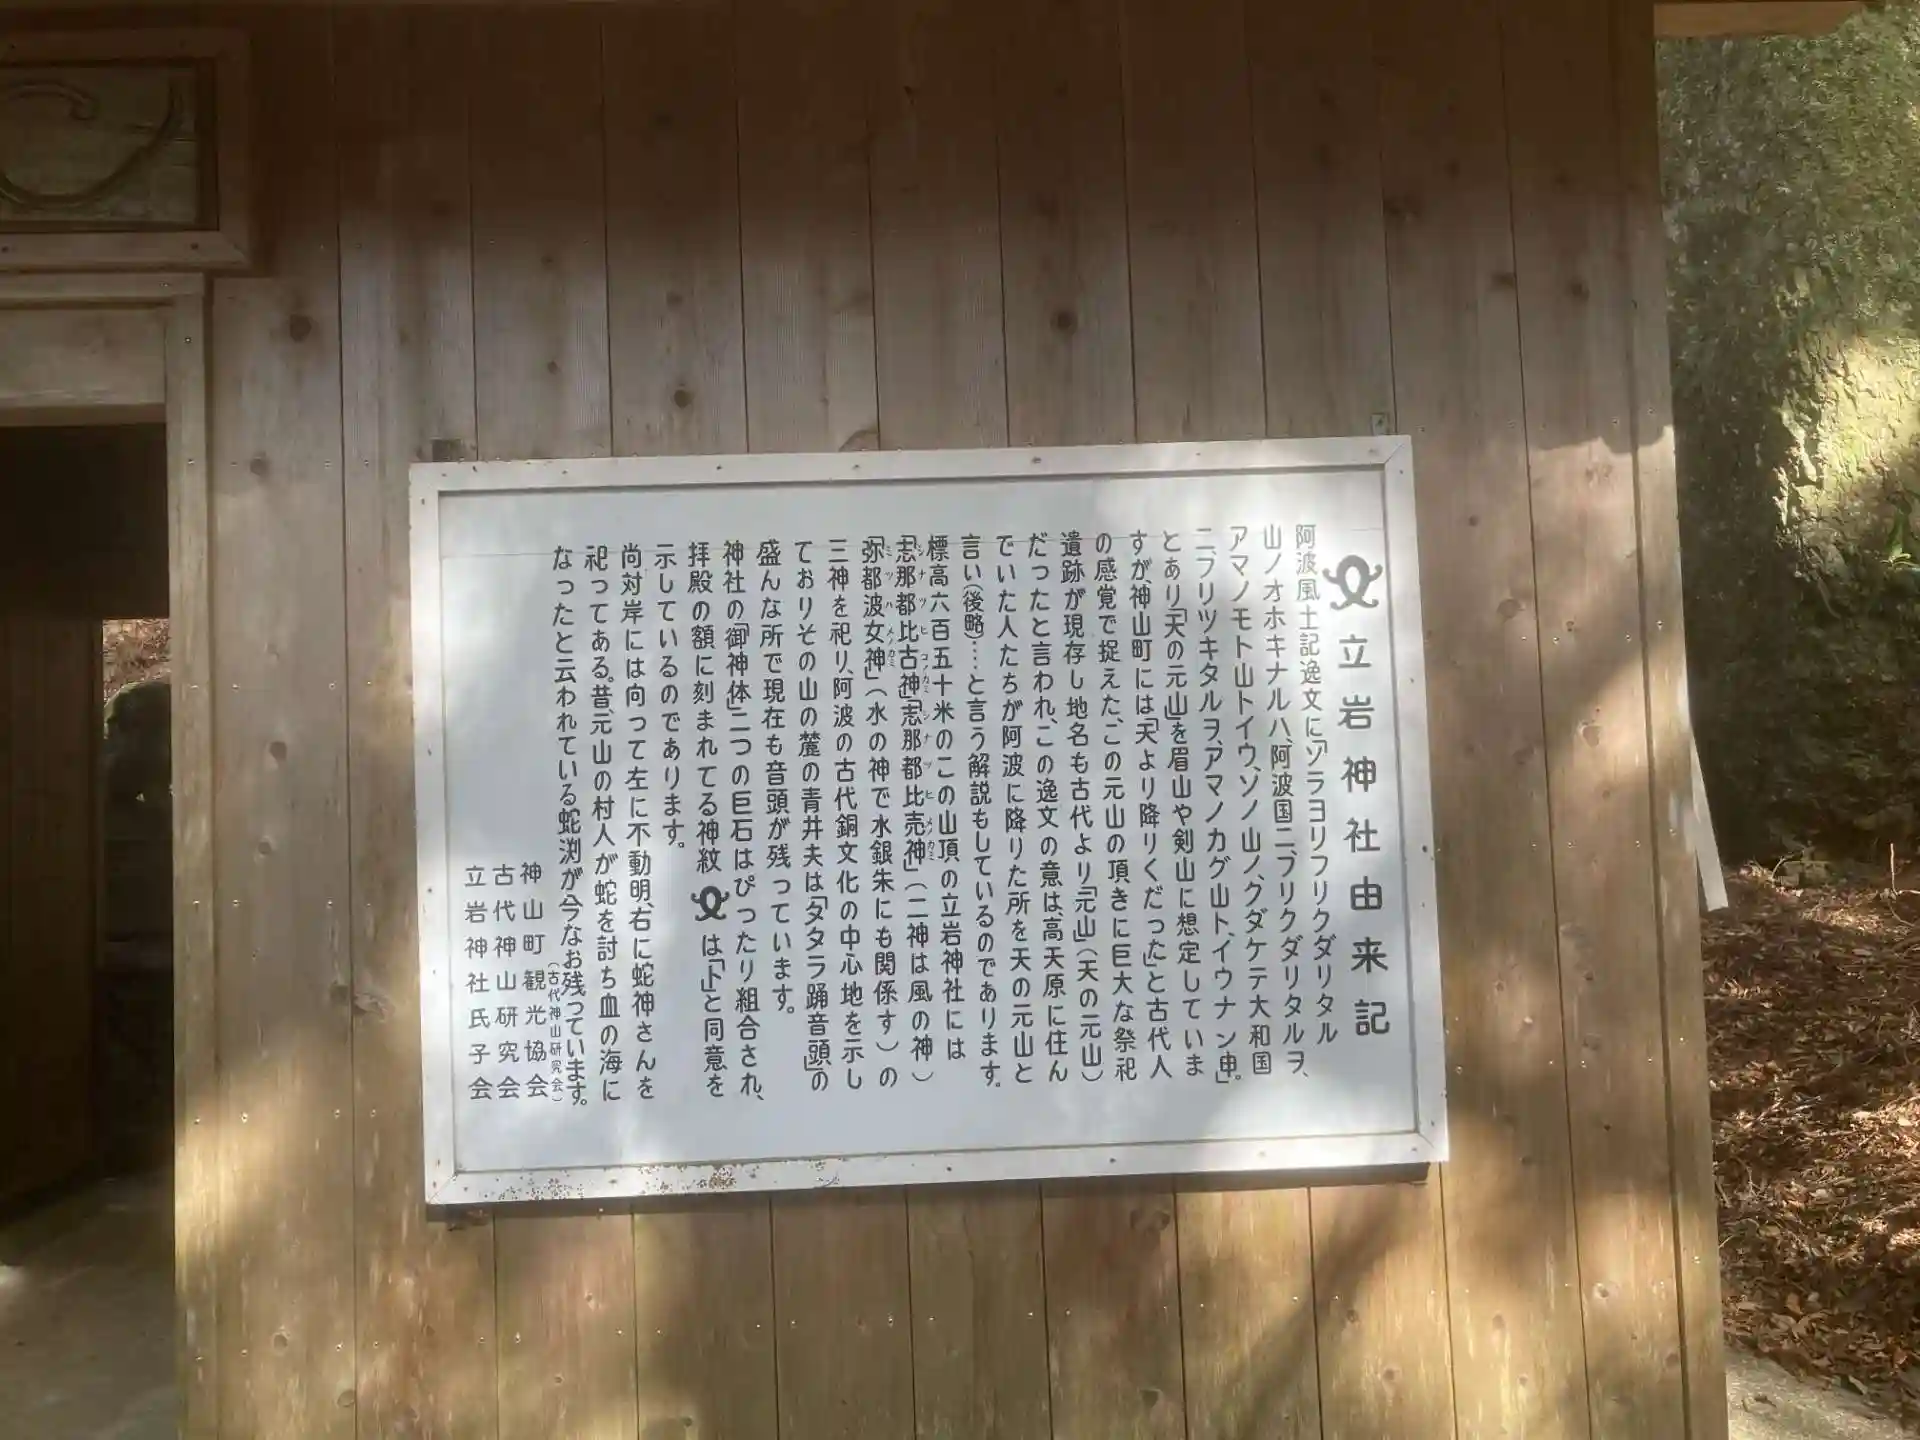 立岩神社由来記
阿波風土記逸文に「ソラヨリフリクダリタル
山ノオホキナルハ、阿波国ニフリクダリタルヲ、
アマノモト山トイウ、ソノ山ノ、クダケテ大和国
ニ、フリツキタルヲ、アマノカグ山ト、イウナン申」。
とあり「天の元山」を眉山や剣山に想定していま
すが、神山町には「天より降りくだった」と古代人
の感覚で捉えた、この元山の頂きに巨大な祭祀
遺跡が現存し地名も古代より「元山」（天の元山）
だったと言われ、この逸文の意は、高天原に住ん
でいた人たちが阿波に降りた所を天の元山と
言い（後略）……と言う解説もしているのであります。
標高六百五十米のこの山頂の立岩神社には
「志那都比古神」「志那都比売神」（二神は風の神）
シナツヒコノカミ シナツヒメノカミ
「弥都波女神」（水の神で水銀朱にも関係す）の
ミツハメノカミ
三神を祀り、阿波の古代銅文化の中心地を示し
ておりその山の麓の青井夫は「タタラ踊音頭」の
盛んな所で現在も音頭が残っています。
神社の「御神体」二つの巨石はぴったり組合され、
拝殿の額に刻まれてる神紋 は「卜」と同意を
示しているのであります。
尚対岸には向って左に不動明、右に蛇神さんを
祀ってある。昔、元山の村人が蛇を討ち血の海に
なったと云われている蛇渕が今なお残っています。
（古代神山研究会）
神山町観光協会
古代神山研究会
立岩神社氏子会